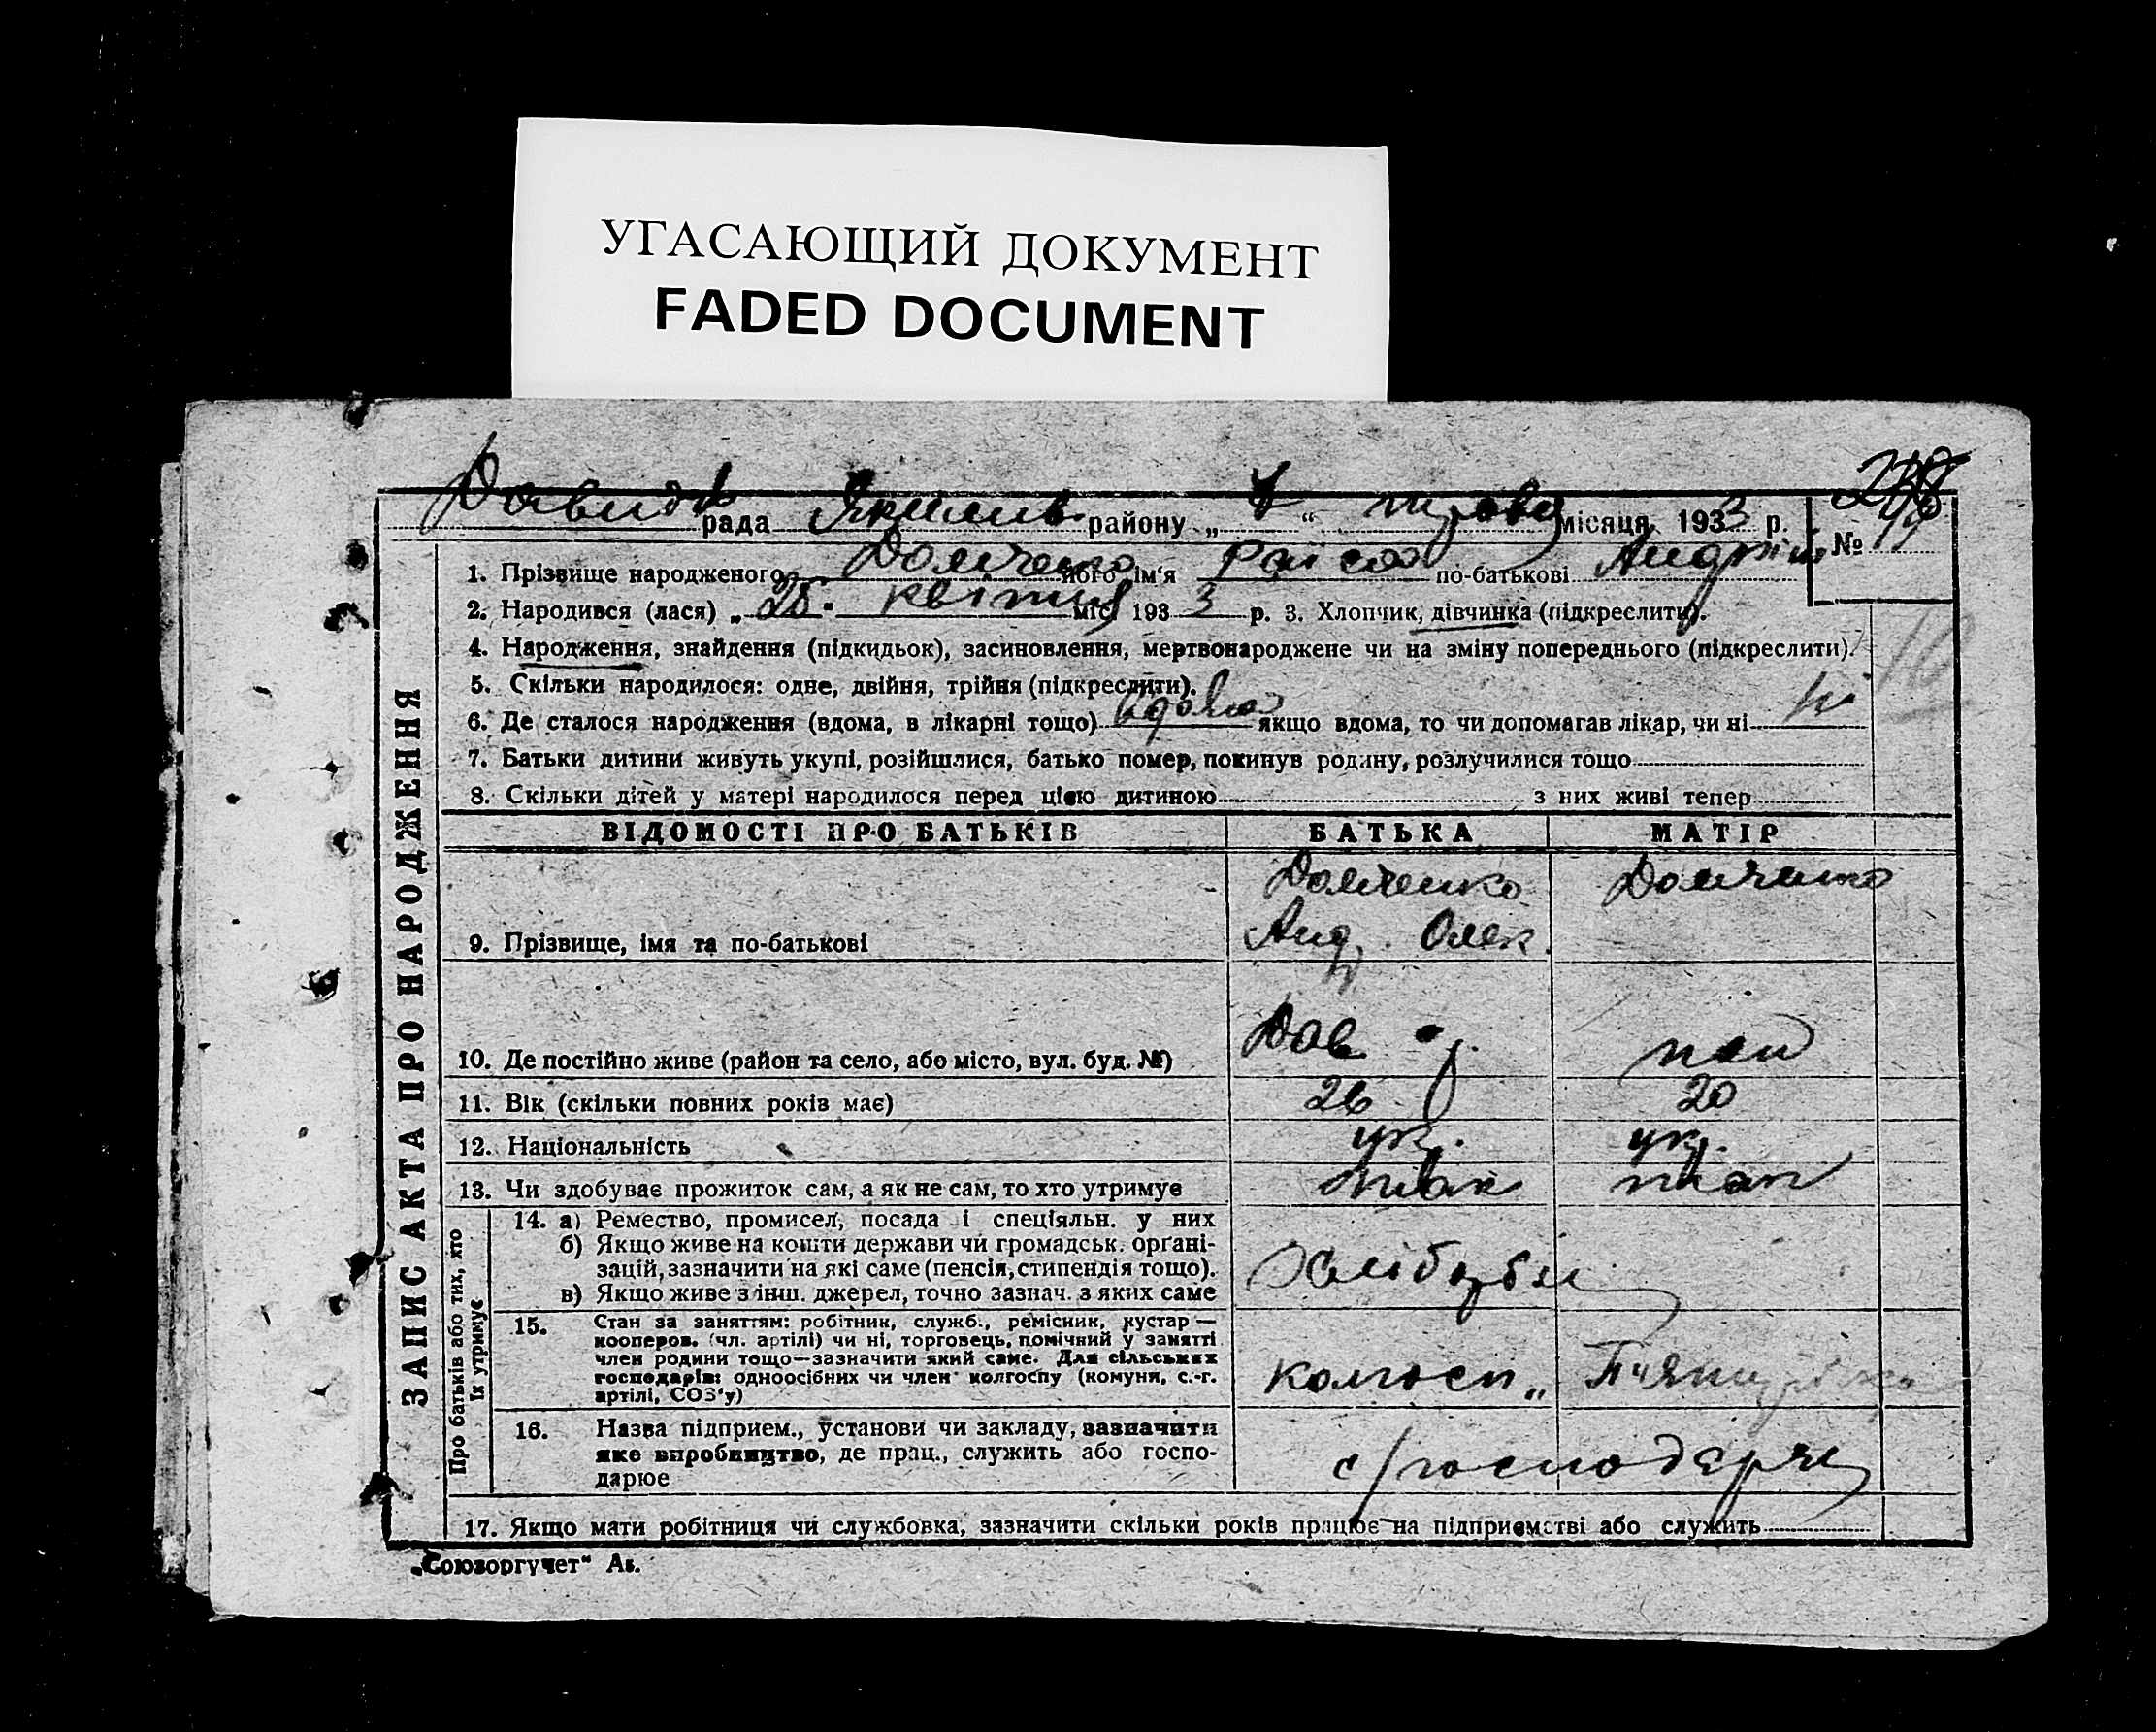 УГАСАЮЩИЙ ДОКУМЕНТ
FADED DOCUMENT
рада Якимів району „ “ травня місяця 1933 р.
№ 14
ЗАПИС АКТА ПРО НАРОДЖЕННЯ
1. Прізвище народженого Домченко його ім'я Раїса по-батькові Андріїв
2. Народився (лася) „28" квітня міс. 1933 р. 3. Хлопчик, дівчинка (підкреслити).
4. Народження, знайдення (підкидьок), засиновлення, мертвонароджене чи на зміну попереднього (підкреслити).
5. Скільки народилося: одне, двійня, трійня (підкреслити).
6. Де сталося народження (вдома, в лікарні тощо) вдома якщо вдома, то чи допомагав лікар, чи ні ні
7. Батьки дитини живуть укупі, розійшлися, батько помер, покинув родину, розлучилися тощо
8. Скільки дітей у матері народилося перед цією дитиною з них живі тепер
ВІДОМОСТІ ПРО БАТЬКІВ БАТЬКА МАТІР
Домченко Домченко
9. Прізвище, імя та по-батькові Анд. Олек.
10. Де постійно живе (район та село, або місто, вул. буд. №) Дав
11. Вік (скільки повних років має) 26 20
12. Національність укр. укр.
13. Чи здобуває прожиток сам, а як не сам, то хто утримує
Про батьків або тих, хто їх утримує
14. а) Ремество, промисел, посада і спеціяльн. у них
б) Якщо живе на кошти держави чи громадськ. органі-
зацій, зазначити на які саме (пенсія, стипендія тощо).
в) Якщо живе з інш. джерел, точно зазнач. з яких саме
15. Стан за заняттям: робітник, служб., ремісник, кустар —
кооперов. (чл. артілі) чи ні, торговець, помічний у занятті
член родини тощо—зазначити який саме. Для сільських
господарів: одноосібних чи член колгоспу (комуни, с.-г.
артілі, СОЗ'у) колгосп „
16. Назва підприєм., установи чи закладу, зазначити
яке виробництво, де прац., служить або госпо-
дарює с/господарче
17. Якщо мати робітниця чи службовка, зазначити скільки років працює на підприємстві або служить
„Союзоргучет“ Ав.